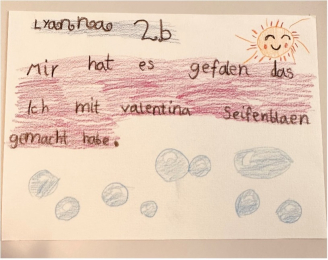 2.b
Mir hat es gefalen das
Ich mit valentina Seifenblaen
gemacht habe.